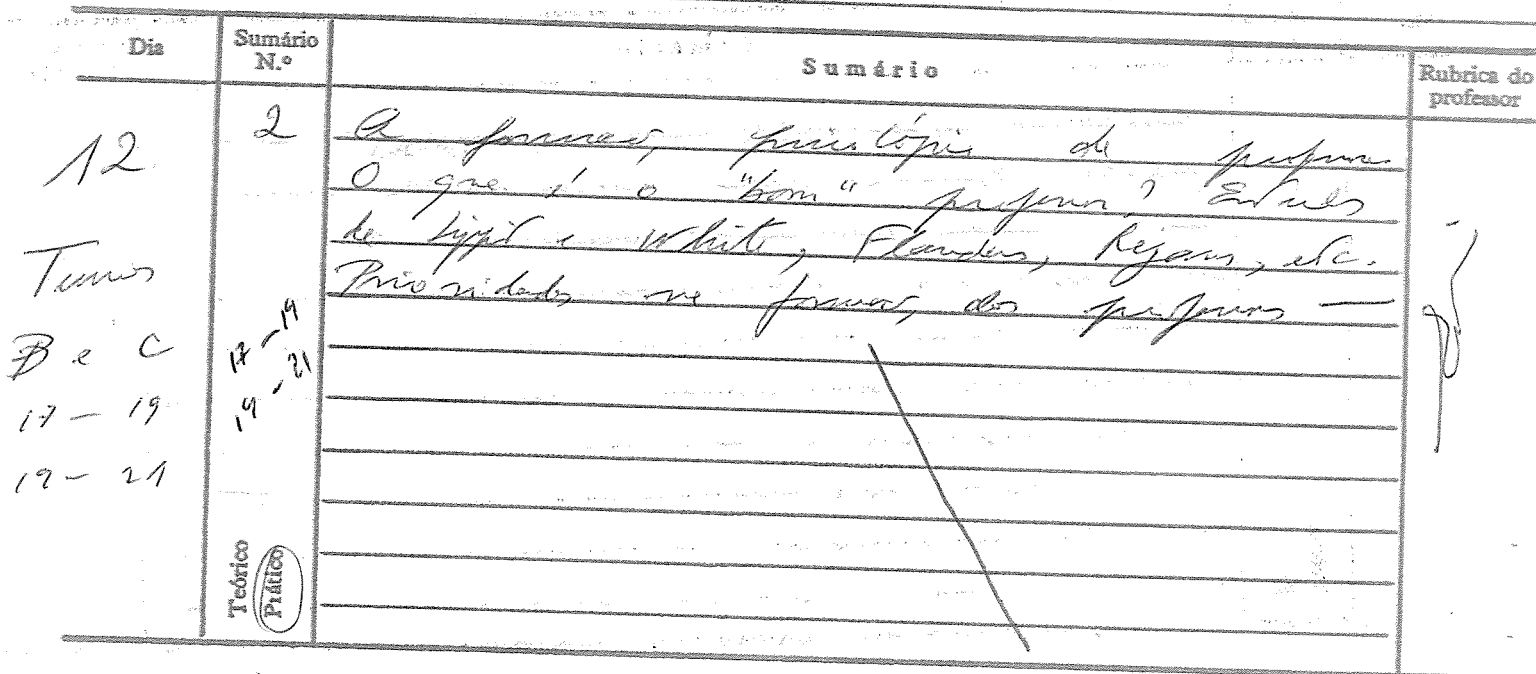 Dia
Sumário N.º
Sumário
Rubrica do professor
12
Turmas
B e C
17 – 19
19 – 21
2
17 – 19
19 – 21
Teórico
Prático
A formação psicológica de professores
O que é o "bom" professor? Estudos
de Lippit e White, Flanders, Ryans, etc.
Prioridades na formação dos professores —